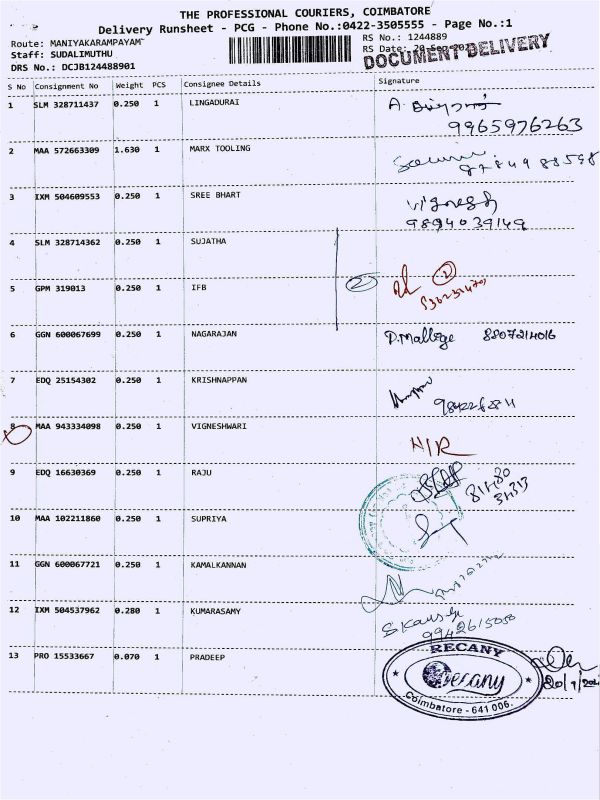 THE PROFESSIONAL COURIERS, COIMBATORE
Delivery Runsheet - PCG - Phone No.:0422-3505555 - Page No.:1
Route: MANIYAKARAMPAYAM
RS No.: 1244889
Staff: SUDALIMUTHU
RS Date:
DOCUMENT DELIVERY
DRS No.: DCJB124488901
S No Consignment No Weight PCS Consignee Details Signature
1 SLM 328711437 0.250 1 LINGADURAI
9965976263
2 MAA 572663309 1.630 1 MARX TOOLING
3 IXM 504609553 0.250 1 SREE BHART Vignesh
9894039149
4 SLM 328714362 0.250 1 SUJATHA
5 GPM 319013 0.250 1 IFB 2 2
6 GGN 600067699 0.250 1 NAGARAJAN 8807214016
7 EDQ 25154302 0.250 1 KRISHNAPPAN
8 MAA 943334098 0.250 1 VIGNESHWARI N/R
9 EDQ 16630369 0.250 1 RAJU
10 MAA 102211860 0.250 1 SUPRIYA
11 GGN 600067721 0.250 1 KAMALKANNAN
12 IXM 504537962 0.280 1 KUMARASAMY
13 PRO 15533667 0.070 1 PRADEEP
RECANY
Recany
Coimbatore - 641 006.